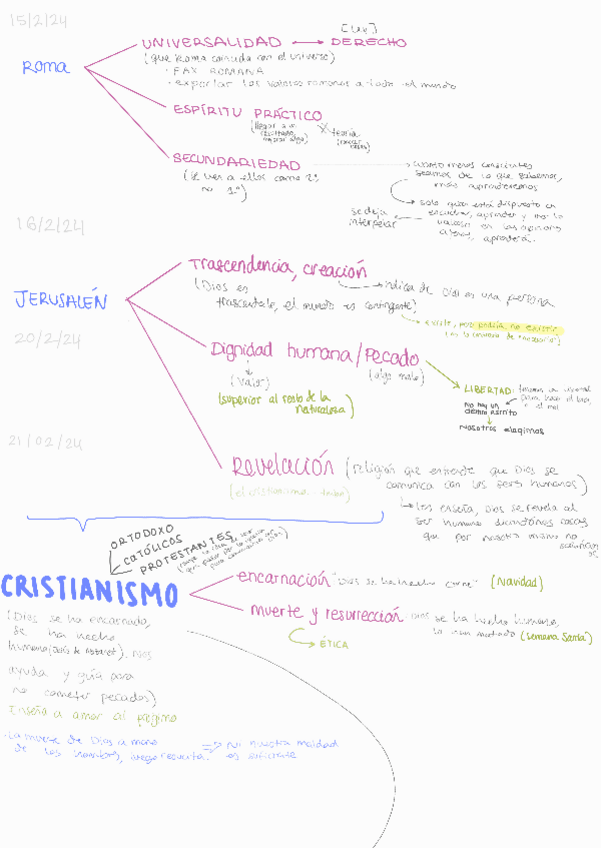 15/2/24
[Ley]
UNIVERSALIDAD DERECHO
(que Roma coincida con el universo)
ROMA
· PAX ROMANA
· exportar los valores romanos a todo el mundo
ESPÍRITU PRÁCTICO
(llegar a un resultado, mejorar algo) X teoría
SECUNDARIEDAD
(se ven a ellos como 2º, no 1º)
cuanto menos conscientes
seamos de lo que sabemos,
más aprenderemos
solo quien está dispuesto en
escuchar, aprender y
valorar en las opiniones
ajenas, aprenderá.
se deja
interpelar
16/2/24
Trascendencia, creación
(Dios es
trascendente, el mundo es contingente)
indica de Dios en una persona
existe, pero podría no existir
(es lo contrario de "necesario")
JERUSALÉN
20/2/24
Dignidad humana/Pecado
(valor)
(algo malo)
(superior al resto de la
naturaleza)
LIBERTAD:
para hacer el bien
o el mal
No hay un
destino escrito
nosotros elegimos
21/02/24
Revelación (religión que entiende que Dios se
comunica con los seres humanos)
(el cristianismo
les enseña, Dios se revela al
ser humano diciéndonos cosas
que por nosotros mismos no
ORTODOXO
CATÓLICOS
PROTESTANTES
CRISTIANISMO
encarnación "Dios se ha hecho carne" (Navidad)
muerte y resurrección Dios se ha hecho humano,
lo han matado (semana santa)
ÉTICA
(Dios se ha encarnado,
se ha hecho
humano (Jesús de Nazaret). Nos
ayuda y guía para
no cometer pecados)
Enseña a amar al prójimo
· La muerte de Dios a mano => nuestra maldad
de los hombres, luego resucita.